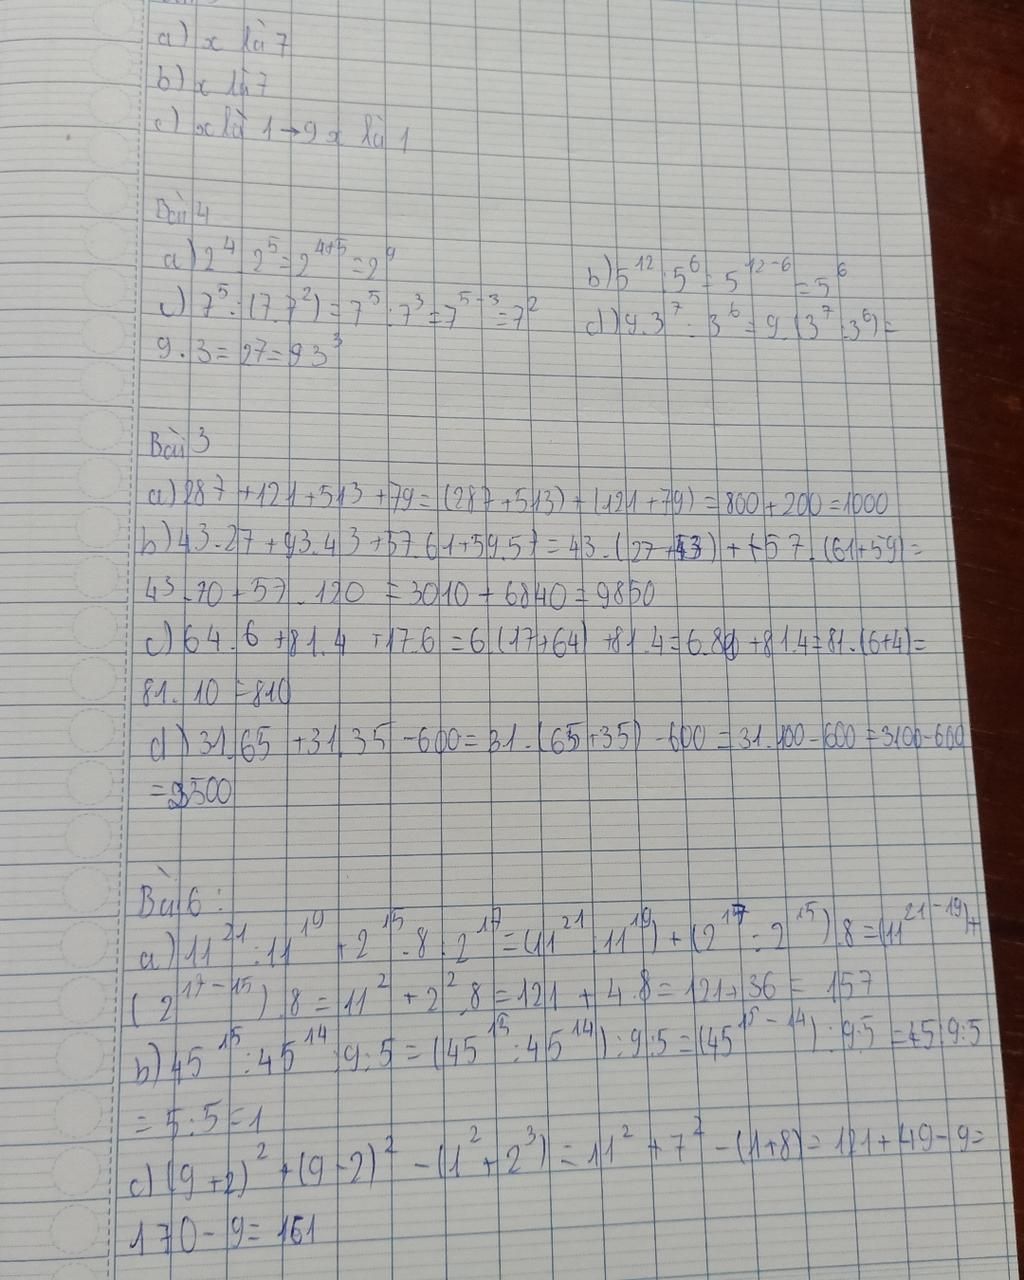 a) x là 7
b) x là 7
c) x là 1 → 9 x là 1
Bài 4
a) 2^4 . 2^5 = 2^{4+5} = 2^9
b) 5^{12} : 5^6 = 5^{12-6} = 5^6
c) 7^5 : (7.7^2) = 7^5 : 7^3 = 7^{5-3} = 7^2
d) 9.3^7 : 3^6 = 9.(3^7 : 3^6) =
9.3 = 27 = 3^3
Bài 3
a) 287 + 121 + 513 + 79 = (287 + 513) + (121 + 79) = 800 + 200 = 1000
b) 43.27 + 93.43 + 57.61 + 59.57 = 43.(27 + 43) + 57.(61 + 59) =
43.70 + 57.120 = 3010 + 6840 = 9850
c) 64.6 + 81.4 + 17.6 = 6.(17 + 64) + 81.4 = 6.81 + 81.4 = 81.(6+4) =
81.10 = 810
d) 31.65 + 31.35 - 600 = 31.(65 + 35) - 600 = 31.100 - 600 = 3100 - 600
= 2500
Bài 6 :
a) 11^{21} : 11^{19} + 2^{15} . 8 . 2^{17} = (11^{21} : 11^{19}) + (2^{17} : 2^{15}) . 8 = (11^{21-19}) +
(2^{17-15}) . 8 = 11^2 + 2^2 . 8 = 121 + 4.8 = 121 + 36 = 157
b) 45^{15} : 45^{14} : 9 : 5 = (45^{15} : 45^{14}) : 9 : 5 = (45^{15-14}) : 9 : 5 = 45 : 9 : 5
= 5 : 5 = 1
c) (9 + 2)^2 + (9 - 2)^2 - (1^2 + 2^3) = 11^2 + 7^2 - (1 + 8) = 121 + 49 - 9 =
170 - 9 = 161